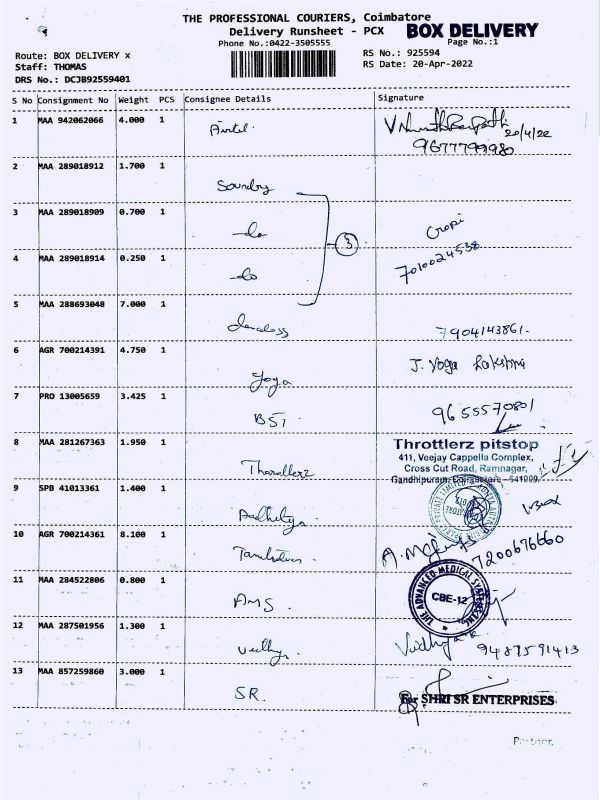 THE PROFESSIONAL COURIERS, Coimbatore
Delivery Runsheet - PCX
BOX DELIVERY
Phone No.:0422-3505555
Page No.:1
Route: BOX DELIVERY x
RS No.: 925594
Staff: THOMAS
RS Date: 20-Apr-2022
DRS No.: DCJB92559401
S No Consignment No Weight PCS Consignee Details Signature
1 MAA 942062066 4.000 1 Airtel.
20/4/22
9677799980
2 MAA 289018912 1.700 1 Soundry
3 MAA 289018909 0.700 1 do
3
Gopi
4 MAA 289018914 0.250 1 do
7010024538
5 MAA 288693048 7.000 1
7904143861.
6 AGR 700214391 4.750 1 Yoga
J. Yoga Lakshmi
7 PRO 13005659 3.425 1 BST
9655570801
8 MAA 281267363 1.950 1
Throttlerz pitstop
411, Veejay Cappella Complex,
Cross Cut Road, Ramnagar,
Gandhipuram, Coimbatore - 641009.
9 SPB 41013361 1.400 1
10 AGR 700214361 8.100 1
7200676660
11 MAA 284522806 0.800 1 AMS.
THE ADVANCED MEDICAL SYSTEMS
CBE-12
12 MAA 287501956 1.300 1 Vidhya.
Vidhya
9487591413
13 MAA 857259860 3.000 1 SR.
For SHRI SR ENTERPRISES
Partner.